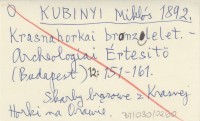 KUBINYI Miklós 1892.
Krasnahorkai bronzelelet. -
Archeologiai Értesitő
(Budapest) 12: 151-161.
Skarby brązowe z Krasnej
Horki na Orawie.